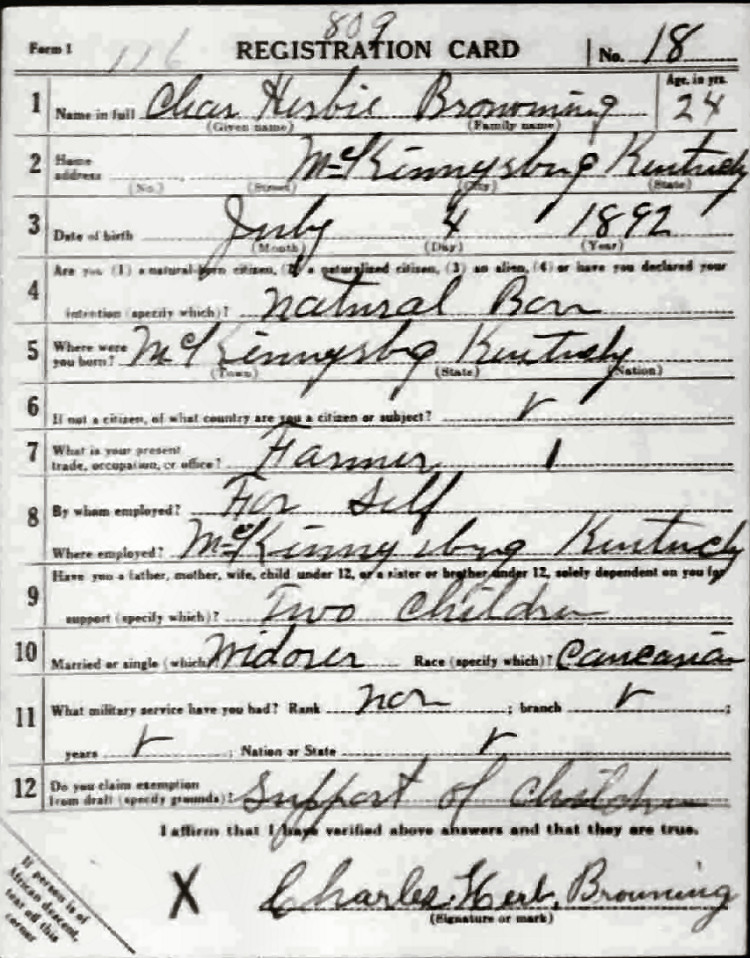 809
Form 1 116 REGISTRATION CARD No. 18
1 Name in full Chas Herbie Browning Age, in yrs. 24
(Given name) (Family name)
2 Home address McKinnysburg Kentucky
(No.) (Street) (City) (State)
3 Date of birth July 4 1892
(Month) (Day) (Year)
4 Are you (1) a natural-born citizen, (2) a naturalized citizen, (3) an alien, (4) or have you declared your
intention (specify which)? natural Born
5 Where were you born? McKinnysbg Kentucky
(Town) (State) (Nation)
6 If not a citizen, of what country are you a citizen or subject?
7 What is your present trade, occupation, or office? Farmer
8 By whom employed? For Self
Where employed? McKinnysburg Kentucky
9 Have you a father, mother, wife, child under 12, or a sister or brother under 12, solely dependent on you for
support (specify which)? Two children
10 Married or single (which) Widower Race (specify which)? Caucasian
11 What military service have you had? Rank non ; branch ;
years ; Nation or State
12 Do you claim exemption from draft (specify grounds)? Support of children
I affirm that I have verified above answers and that they are true.
X Charles Herb. Browning
(Signature or mark)
If person is of
African descent,
tear off this
corner